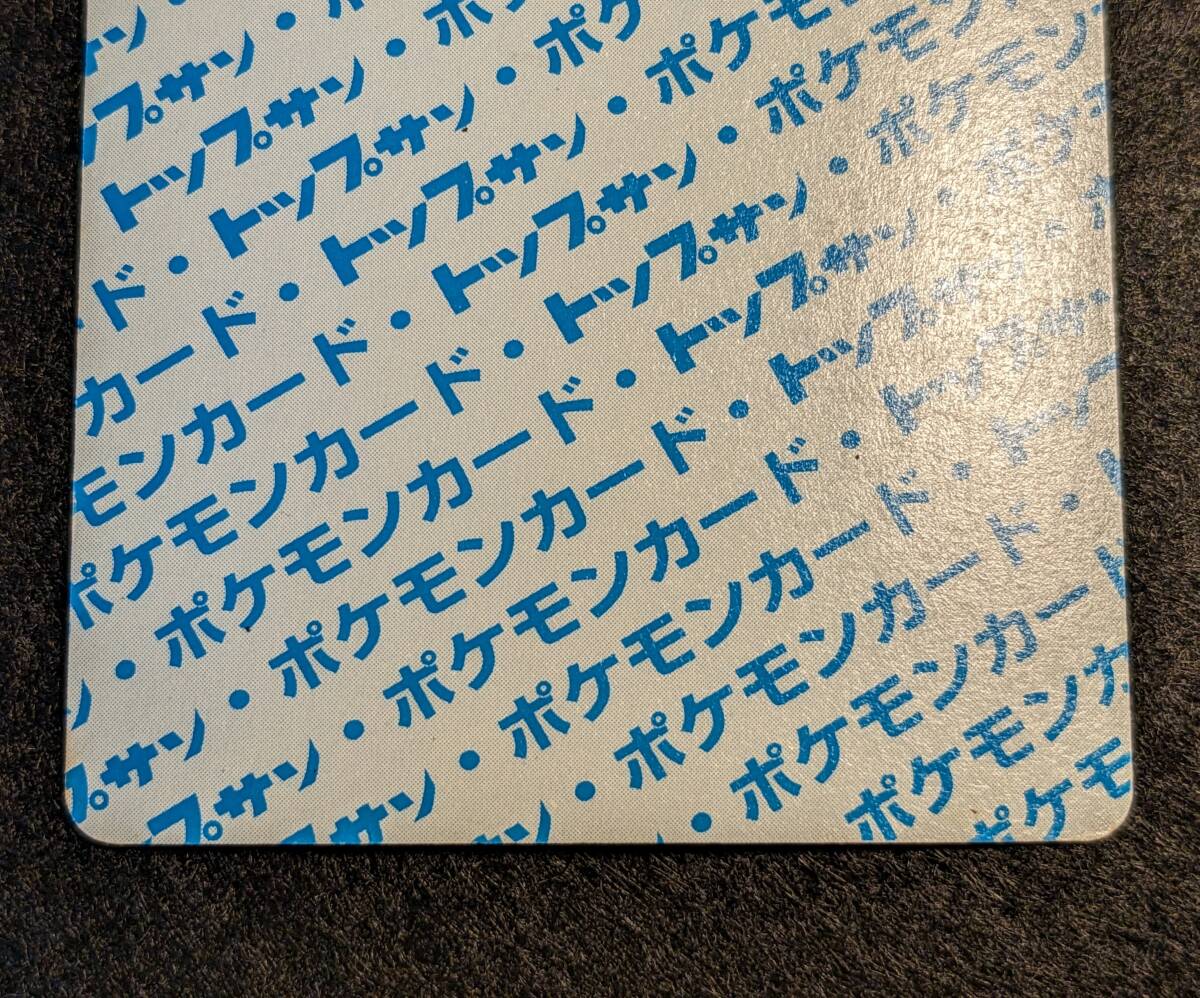 サン・
ップサン・ポ
トップサン・ポケ
ド・トップサン・ポケ
カード・トップサン・ポケモ
モンカード・トップサン・ポケモン
ポケモンカード・トップサン・ポケモン
・ポケモンカード・トップサン・ポケ
ン・ポケモンカード・トップサン・
プサン・ポケモンカード・トップサン
プサン・ポケモンカード・トッ
サン・ポケモンカード・
・ポケモンカード
ポケモンカ
ポケモ